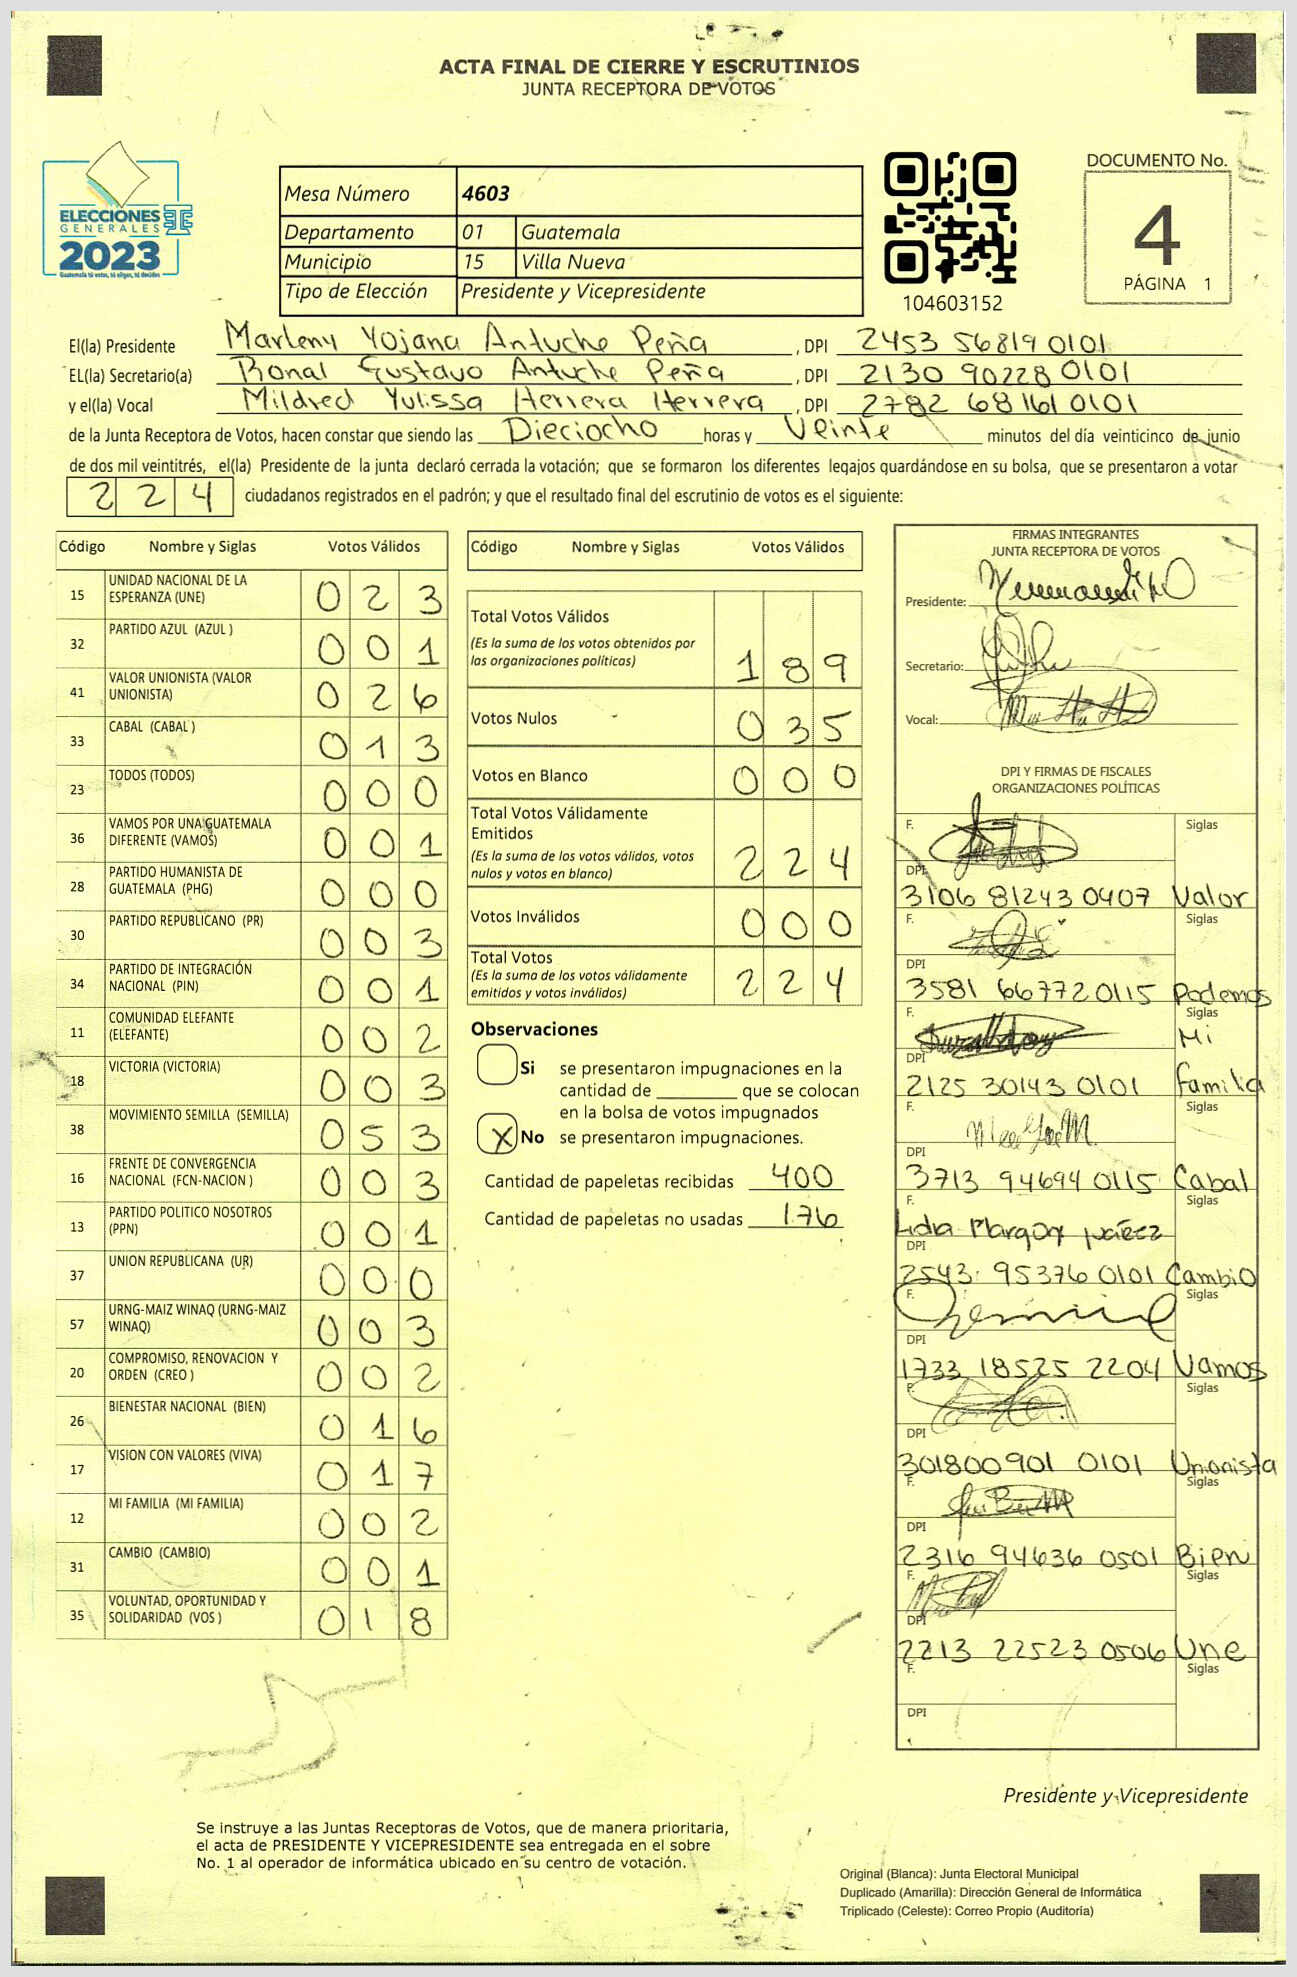 ACTA FINAL DE CIERRE Y ESCRUTINIOS
JUNTA RECEPTORA DE VOTOS
ELECCIONES
GENERALES
2023
Guatemala tú votas, tú eliges, tú decides
Mesa Número 4603
Departamento 01 Guatemala
Municipio 15 Villa Nueva
Tipo de Elección Presidente y Vicepresidente
104603152
DOCUMENTO No.
4
PÁGINA 1
El(la) Presidente Marleny Yojana Antuche Peña , DPI 2453 56819 0101
EL(la) Secretario(a) Ronal Gustavo Antuche Peña , DPI 2130 90228 0101
y el(la) Vocal Mildred Yulissa Herrera Herrera , DPI 2782 68161 0101
de la Junta Receptora de Votos, hacen constar que siendo las Dieciocho horas y Veinte minutos del día veinticinco de junio
de dos mil veintitrés, el(la) Presidente de la junta declaró cerrada la votación; que se formaron los diferentes legajos guardándose en su bolsa, que se presentaron a votar
224 ciudadanos registrados en el padrón; y que el resultado final del escrutinio de votos es el siguiente:
Código Nombre y Siglas Votos Válidos
15 UNIDAD NACIONAL DE LA ESPERANZA (UNE) 0 2 3
32 PARTIDO AZUL (AZUL ) 0 0 1
41 VALOR UNIONISTA (VALOR UNIONISTA) 0 2 6
33 CABAL (CABAL ) 0 1 3
23 TODOS (TODOS) 0 0 0
36 VAMOS POR UNA GUATEMALA DIFERENTE (VAMOS) 0 0 1
28 PARTIDO HUMANISTA DE GUATEMALA (PHG) 0 0 0
30 PARTIDO REPUBLICANO (PR) 0 0 3
34 PARTIDO DE INTEGRACIÓN NACIONAL (PIN) 0 0 1
11 COMUNIDAD ELEFANTE (ELEFANTE) 0 0 2
18 VICTORIA (VICTORIA) 0 0 3
38 MOVIMIENTO SEMILLA (SEMILLA) 0 5 3
16 FRENTE DE CONVERGENCIA NACIONAL (FCN-NACION ) 0 0 3
13 PARTIDO POLITICO NOSOTROS (PPN) 0 0 1
37 UNION REPUBLICANA (UR) 0 0 0
57 URNG-MAIZ WINAQ (URNG-MAIZ WINAQ) 0 0 3
20 COMPROMISO, RENOVACION Y ORDEN (CREO ) 0 0 2
26 BIENESTAR NACIONAL (BIEN) 0 1 6
17 VISION CON VALORES (VIVA) 0 1 7
12 MI FAMILIA (MI FAMILIA) 0 0 2
31 CAMBIO (CAMBIO) 0 0 1
35 VOLUNTAD, OPORTUNIDAD Y SOLIDARIDAD (VOS ) 0 1 8
Código Nombre y Siglas Votos Válidos
Total Votos Válidos
(Es la suma de los votos obtenidos por las organizaciones políticas) 1 8 9
Votos Nulos 0 3 5
Votos en Blanco 0 0 0
Total Votos Válidamente Emitidos
(Es la suma de los votos válidos, votos nulos y votos en blanco) 2 2 4
Votos Inválidos 0 0 0
Total Votos
(Es la suma de los votos válidamente emitidos y votos inválidos) 2 2 4
Observaciones
Si se presentaron impugnaciones en la
cantidad de ________ que se colocan
en la bolsa de votos impugnados
X No se presentaron impugnaciones.
Cantidad de papeletas recibidas 400
Cantidad de papeletas no usadas 176
FIRMAS INTEGRANTES
JUNTA RECEPTORA DE VOTOS
Presidente:
Secretario:
Vocal:
DPI Y FIRMAS DE FISCALES
ORGANIZACIONES POLÍTICAS
F. Siglas
DPI
3106 81243 0407 Valor
F. Siglas
DPI
3581 66772 0115 Podemos
F. Siglas
Mi
DPI
2125 30143 0101 familia
F. Siglas
DPI
3713 94694 0115 Cabal
F. Siglas
Lidia Margoy juárez
DPI
2543 95376 0101 Cambio
F. Siglas
DPI
1733 18525 2204 Vamos
F. Siglas
DPI
301800901 0101 Unionista
F. Siglas
DPI
2316 94636 0501 Bien
F. Siglas
DPI
2213 22523 0506 Une
F. Siglas
DPI
Presidente y Vicepresidente
Se instruye a las Juntas Receptoras de Votos, que de manera prioritaria,
el acta de PRESIDENTE Y VICEPRESIDENTE sea entregada en el sobre
No. 1 al operador de informática ubicado en su centro de votación.
Original (Blanca): Junta Electoral Municipal
Duplicado (Amarilla): Dirección General de Informática
Triplicado (Celeste): Correo Propio (Auditoría)